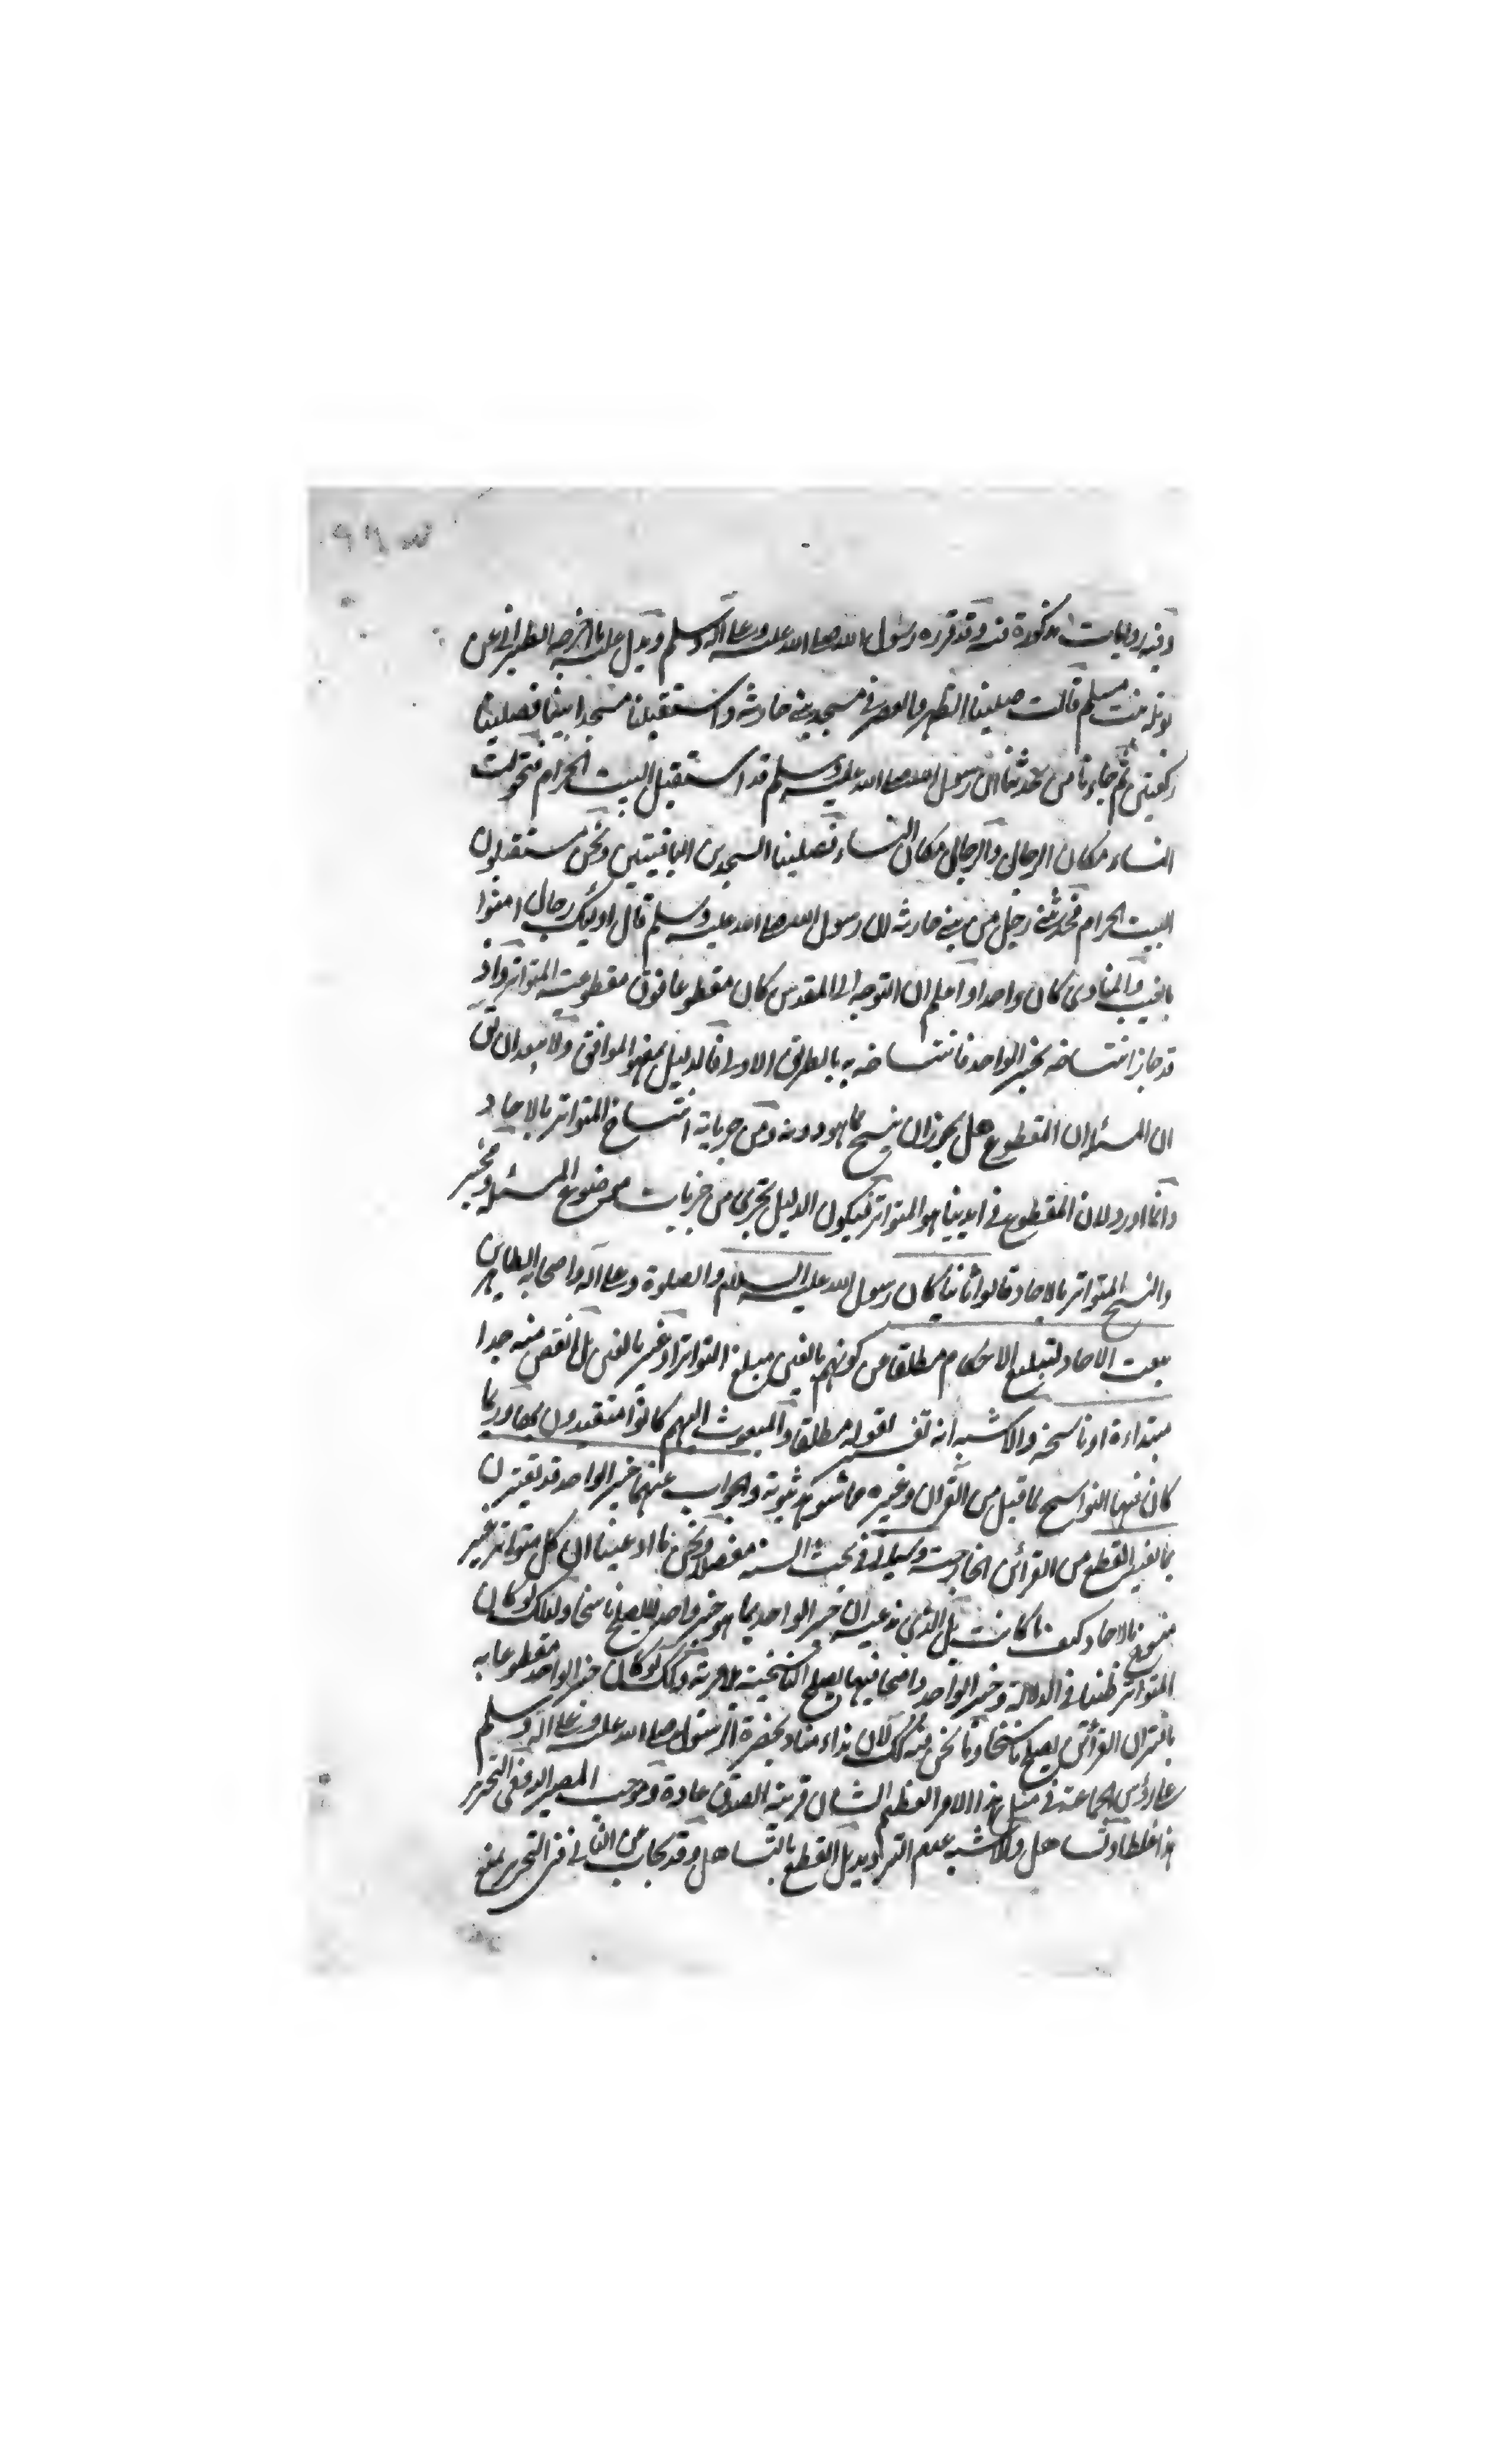 وفيه روايات مذكورة فيه وقد قرره رسول الله صلى الله عليه وعلى اله وسلم ويدل عليه ما اخرجه الطبراني عن
نويلة بنت مسلم قالت صلينا الظهر والعصر في مسجد بني حارثة واستقبلنا مسجد ايليا فصلينا
ركعتين ثم جاءنا من يحدثنا ان رسول الله صلى الله عليه وسلم قد استقبل البيت الحرام فتحولت
النساء مكان الرجال والرجال مكان النساء فصلينا السجدتين الباقيتين ونحن مستقبلون
البيت الحرام فحدثني رجل من بني حارثة ان رسول الله صلى الله عليه وسلم قال اوليك رجال امنوا
بالغيب والمنادي كان واحدا واعلم ان التوجه الى المقدس كان مقطوعا فوق مقطوعية المتواتر واذ
قد جاز انتساخه بخبر الواحد فانتساخه به بالطريق الاولى فالدليل بمفهوم الموافق ولا يبعد ان يق
ان المسئلة ان المقطوع هل يجوز ان ينسخ بما هو دونه ومن جزياته انتساخ المتواتر بالاحاد
وانما اورد لان المقطوع في ايدينا هو المتواتر فيكون الدليل يجري من جزيات موضوع المسئلة
والنسخ المتواتر بالاحاد قالوا ثانيا كان رسول الله عليه السلام والصلوة وعلى اله واصحابه الطاهرين
يبعث الاحاد لتبليغ الاحكام مطلقا من كونهم بالغين مبلغ التواتر او غير بالغين بل انقص منه جدا
مبتداءة او ناسخة والاشبه انه تفسير لقوله مطلقا والمبعوث اليهم كانوا متعبدون بها وربما
كان فيها النواسخ لما قبل من القران وغيره ثبوته والجواب عنهما خبر الواحد قد يقترن
بما يفيد القطع من القرائن الخارجة وسياتي في بحث السنة مفصلا ونحن ما ادعينا ان كل متواتر غير
منسوخ بالاحاد كيف ما كانت بل الذي ندعيه ان خبر الواحد بما هو خبر واحد لا يصلح ناسخا ولذلك لو كان
المتواتر ظنيا في الدلالة وخبر الواحد واضحا فيها يصلح للناسخية وكذلك لو كان خبر الواحد مقطوعا به
باقتران القرائن يصلح ناسخا وما نحن فيه كك لان نداء مناد بحضرة الرسول صلى الله عليه وعلى اله وسلم
على رؤس الجماعة في مثل هذا الامر العظيم الشان قرينة الصدق عادة وموجب المصير اليه وفي التحرير
هذا غلط او تساهل والاشبه عدم الترديد بل القطع بالتساهل وقد يجاب عن الثاني في التحرير بمنع